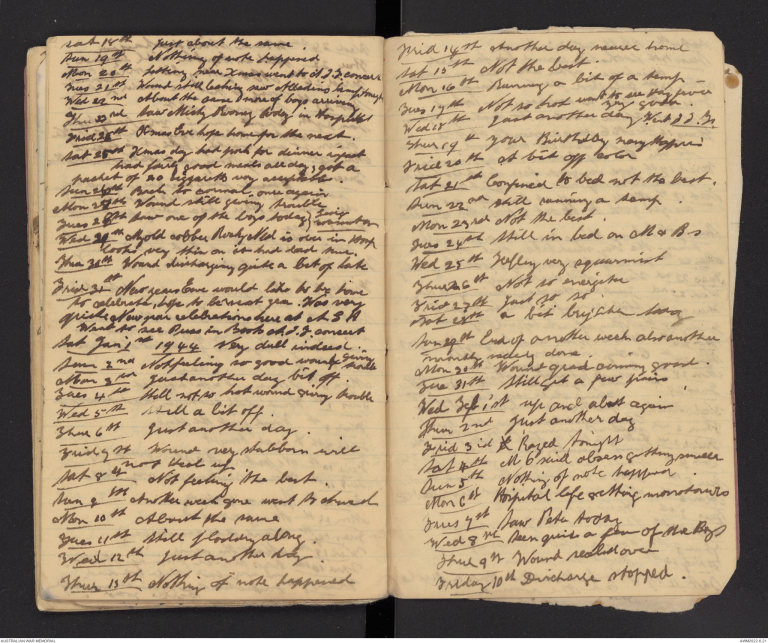 Sat 18th Just about the same.
Sun 19th Nothing of note happened
Mon 20th Getting near Xmas went to A.I.F. concert
Tues 21st Wound still
Wed 22nd About the same more of boys arriving
Thur 23rd Saw Micky Rooney today in Hospital
Frid 24th Xmas Eve hope home for the next.
Sat 25th Xmas day had pork for dinner
had fairly good meals all day, got a
packet of 20 very
Sun 26th Back to normal once again
Mon 27th Wound still giving trouble
Tues 28th Saw one of the boys today
Wed 29th My old cobber is over in Hosp
looks very thin as it had bad time.
Thur 30th Wound discharging quite a bit of late
Frid 31st New years Eve would like to be home
to celebrate, hope to be next year. Was very
quiet New year celebrations here at
Went to see A.I.F. concert
Sat Jan 1st 1944 Very dull indeed.
Sun 2nd Not feeling so good wound giving trouble
Mon 3rd Just another day bit off.
Tues 4th Still not so hot wound giving trouble
Wed 5th Still a bit off.
Thur 6th Just another day.
Frid 7th Wound very stubborn will
not heal up.
Sat 8th Not feeling the best.
Sun 9th Another week gone went to church
Mon 10th About the same
Tues 11th Still plodding along.
Wed 12th Just another day.
Thur 13th Nothing of note happened
Frid 14th Another day nearer home
Sat 15th Not the best.
Mon 16th Running a bit of a temp
Tues 17th Not so hot went to see
very good.
Wed 18th Just another day
Thur 19th Your Birthday many Happie
Frid 20th A bit off color
Sat 21st Confined to bed not the best.
Sun 22nd Still running a temp.
Mon 23rd Not the best.
Tues 24th Still in bed on M & B s
Wed 25th Feeling very squeamish
Thur 26th Not so energetic
Frid 27th Just so so
Sat 28th A bit brighter today
Sun 29th End of another week also another
month nearly done.
Mon 30th Wound coming good.
Tues 31st Still got a few pains
Wed Feb 1st up and about again
Thur 2nd Just another day
Frid 3rd Raged tonight
Sat 4th M O said getting smaller
Sun 5th Nothing of note happened.
Mon 6th Hospital life getting monotonous
Tues 7th Saw Pete today
Wed 8th Seen quite a few of the Boys
Thur 9th Wound healed over
Friday 10th Discharge stopped.
AUSTRALIAN WAR MEMORIAL